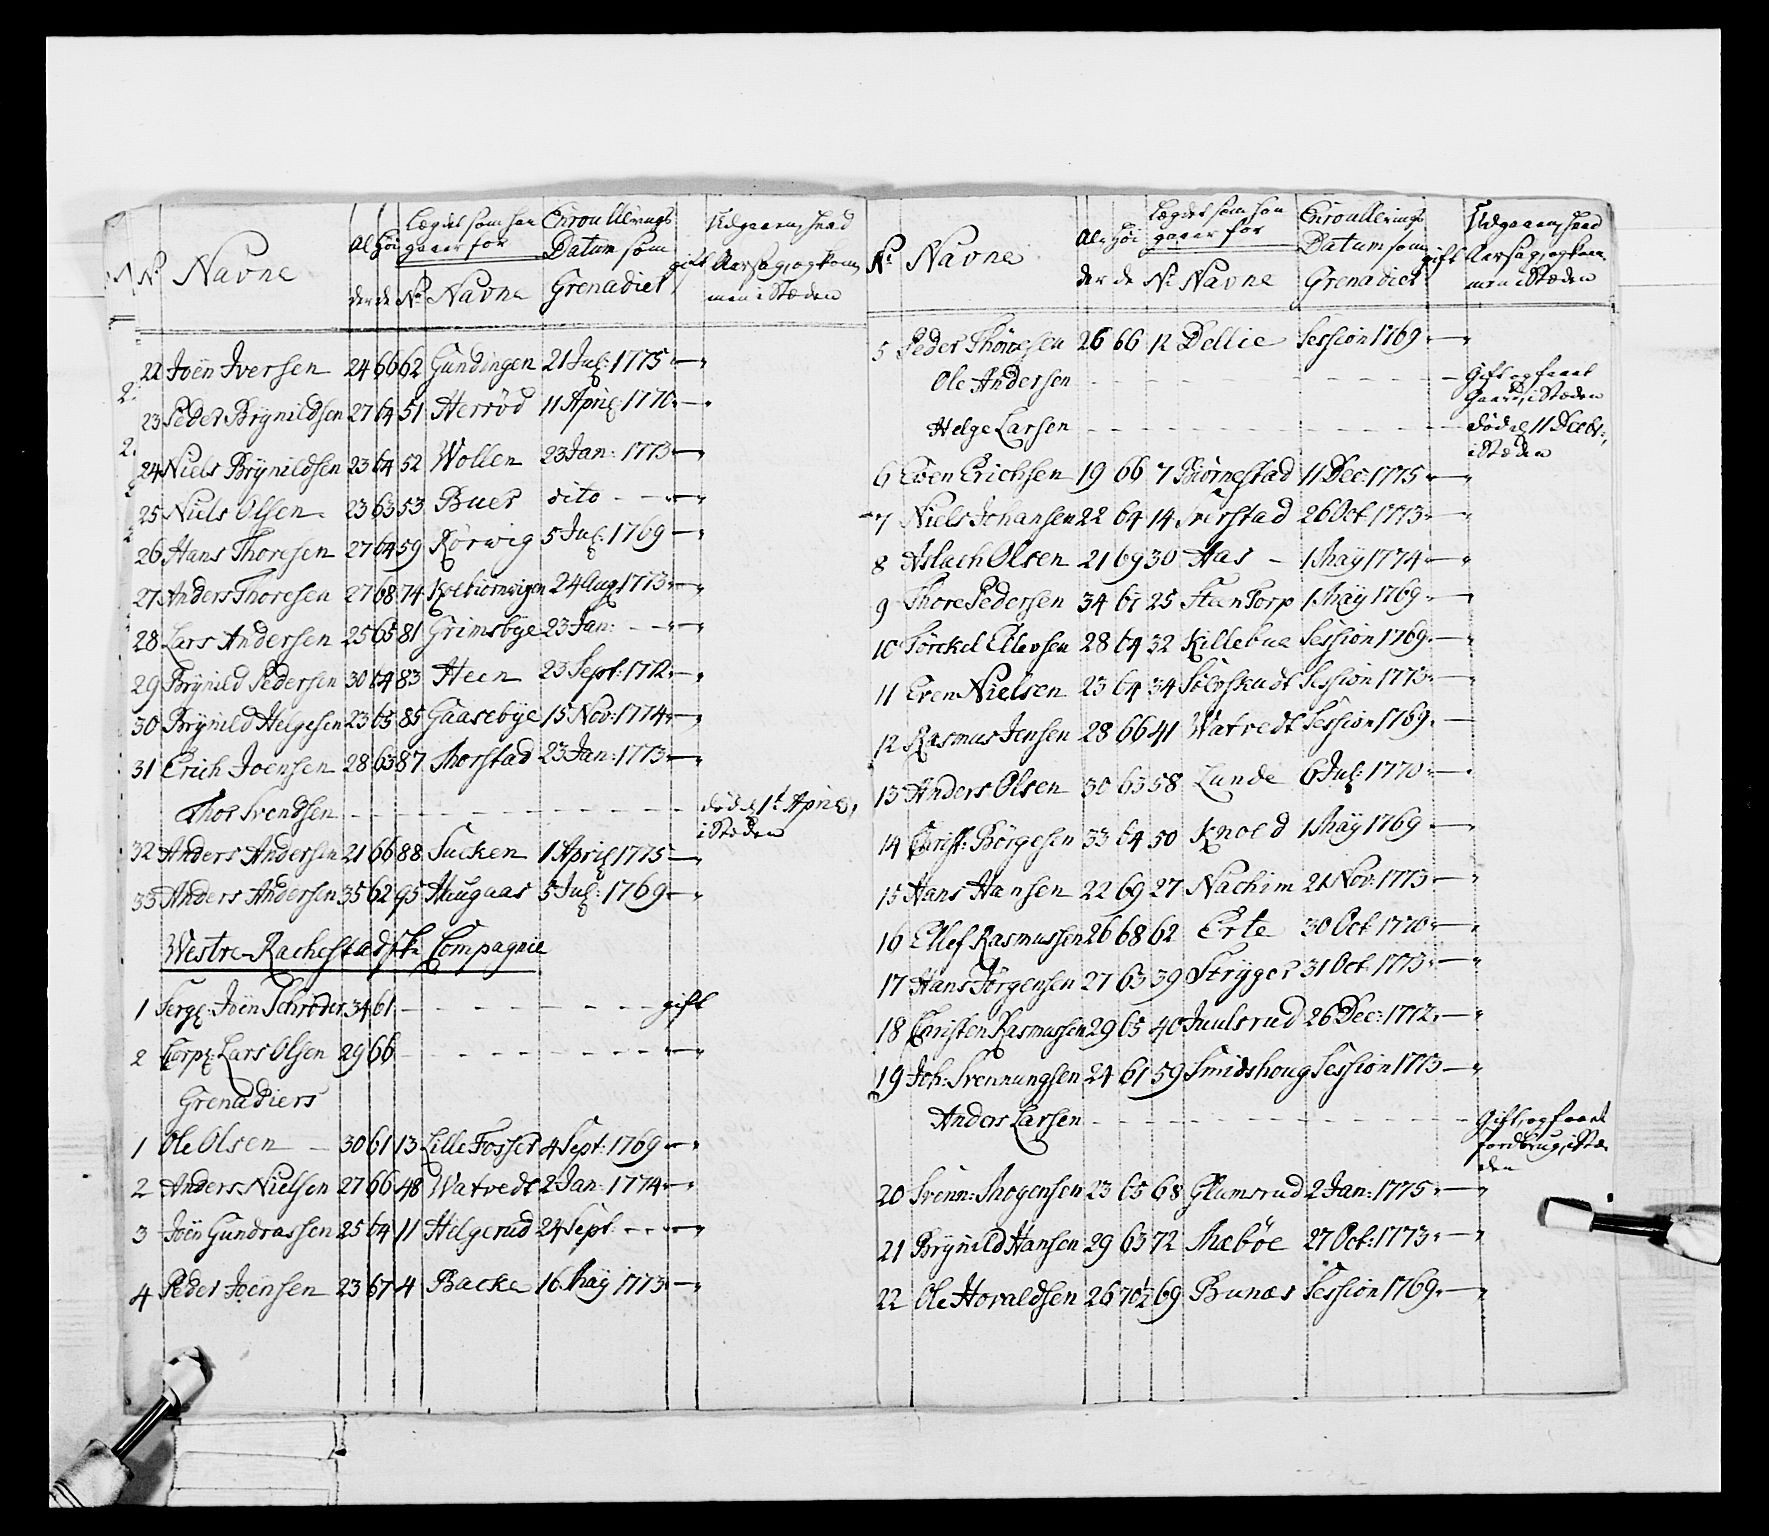 No Navne Alder Høide Lægdet som han gaaer for No Navne Enroullerings Datum som Grenadier gift Udgaaen, hvad Aarsag, og kommen i Stæden
22 Joën Iversen 24 66 62 Gundingen 21 Jul: 1775 — "
23 Peder Brynildsen 27 64 51 Herrød 11 April: 1770 — "
24 Niels Brÿnildsen 23 64 52 Wollen 23 Jan: 1773 — "
25 Niels Olsen 23 63 53 Buer dito — "
26 Hans Thoresen 27 64 59 Rørwig 5 Jul: 1769 — "
27 Anders Thoresen 27 68 74 24 Aug: 1773 — "
28 Lars Andersen 25 65 81 Grimsbÿe 23 Jan: — "
29 Brÿnild Pedersen 30 64 83 Heen 23 Sept: 1772 — "
30 Brÿnild Helgesen 23 65 85 Gaasebÿe 15 Nov: 1774 — "
31 Erich Joensen 28 63 87 Thorstad 23 Jan: 1773 — "
Thor Svendsen — død d: 1t April,
i Stæden
32 Anders Andersen 21 66 88 Sucken 1 April 1775 — "
33 Anders Andersen 35 62 95 Haugaas 5 Jul: 1769 — "
Westre-Rachestadske Compagnie
1 Serg: Joen Schrøder 34 61 — gift
2 Corp: Lars Olsen 29 66 — "
Grenadiers
1 Ole Olsen — 30 61 13 Lille Fosser 4 Sept: 1769 — "
2 Anders Nielsen 27 66 48 Watvedt 2 Jan: 1774 — "
3 Joën Gundrassen 25 64 11 Helgerud 24 Sept — "
4 Peder Joensen 23 67 4 Backe 16 Maÿ 1773 — "
No Navne Alder Høide Lægdet som han gaaer for No Navne Enroullerings Datum som Grenadier gift Udgaaen, hvad Aarsag, og kommen i Stæden
5 Peder Thoresen 26 66 12 Dellie Session 1769 — "
Ole Andersen — Gift og faaet
Gaard, i Stæden
Helge Larsen — død d: 11 Decbr:,
i Stæden
6 Even Erichsen 19 66 7 Biørnestad 11 Dec: 1775 — "
7 Niels Johansen 22 64 14 26 Oct 1773 — "
8 Aslach Olsen 21 69 30 Aas — 1 Maÿ 1774 — "
9 Thore Pedersen 34 61 25 Steen Torp 1 Maÿ 1769 — "
10 Tørckel Ellevsen 28 64 32 Killebue Session 1769 — "
11 Even Nielsen 23 64 34 Session 1773 — "
12 Rasmus Jensen 28 66 41 Watvedt Session 1769 —
13 Anders Olsen 30 63 58 Lunde 6 Jul: 1770 — "
14 Christ: Børgesen 33 64 50 Knold 1 Maÿ 1769 — "
15 Hans Hansen 22 69 27 Nachim 21 Nov: 1773 — "
16 Ellef Rasmussen 26 68 62 Erte 30 Oct 1770 — "
17 Hans Jørgensen 27 63 39 Strÿger 31 Oct 1773 — "
18 Christen Rasmussen 29 65 40 Juulsrud 26 Dec: 1772 — "
19 Joh: Svennungsen 24 61 59 Smidshoug Session 1773 — "
Anders Larsen — Gift, og faaet
Jordbrug, i Stæ
den
20 Svenn: Mogensen 23 65 68 Glamsrud 2 Jan: 1775 — "
21 Brÿnild Hansen 29 63 72 Mæbøe 27 Oct: 1773 — "
22 Ole Horaldsen 26 70½ 69 Bunæs Session 1769 — "